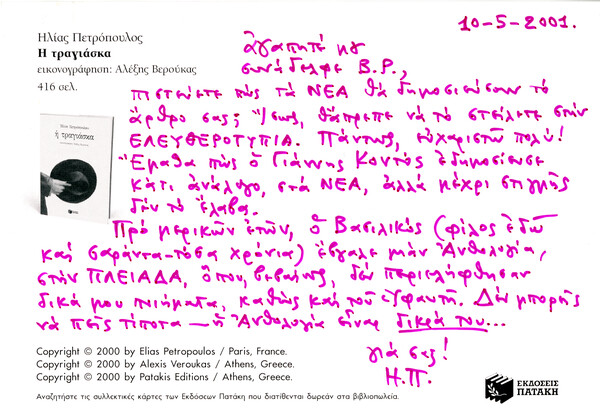 Ηλίας Πετρόπουλος
Η τραγιάσκα
εικονογράφηση: Αλέξης Βερούκας
416 σελ.
10-5-2001.
ἀγαπητέ μου
συνάδελφε Β.Ρ.,
πιστεύετε πὼς τὰ ΝΕΑ θὰ δημοσιεύσουν τὸ
ἄρθρο σας; Ἴσως, θἄπρεπε νὰ τὸ στείλετε στὴν
ΕΛΕΥΘΕΡΟΤΥΠΙΑ. Πάντως, εὐχαριστῶ πολύ!
Ἔμαθα πὼς ὁ Γιάννης Κοντὸς ἐδημοσίευσε
κάτι ἀνάλογο, στὰ ΝΕΑ, ἀλλὰ μέχρι στιγμῆς
δὲν τὸ ἔλαβα.
Πρὸ μερικῶν ἐτῶν, ὁ Βασιλικὸς (φίλος ἐδῶ
καὶ σαράντα-τόσα χρόνια) ἔβγαλε μιὰν Ἀνθολογία,
στὴν ΠΛΕΙΑΔΑ, ὅπου, βεβαίως, δὲν περιελήφθησαν
δικά μου ποιήματα, καθὼς καὶ τοῦ ἐξραντῆ. Δὲν μπορεῖς
νὰ πεῖς τίποτα — ἡ Ἀνθολογία εἶναι δικιά του...
γιά σας!
Η.Π.
ἡ τραγιάσκα
Copyright © 2000 by Elias Petropoulos / Paris, France.
Copyright © 2000 by Alexis Veroukas / Athens, Greece.
Copyright © 2000 by Patakis Editions / Athens, Greece.
Αναζητήστε τις συλλεκτικές κάρτες των Εκδόσεων Πατάκη που διατίθενται δωρεάν στα βιβλιοπωλεία.
ΕΚΔΟΣΕΙΣ
ΠΑΤΑΚΗ